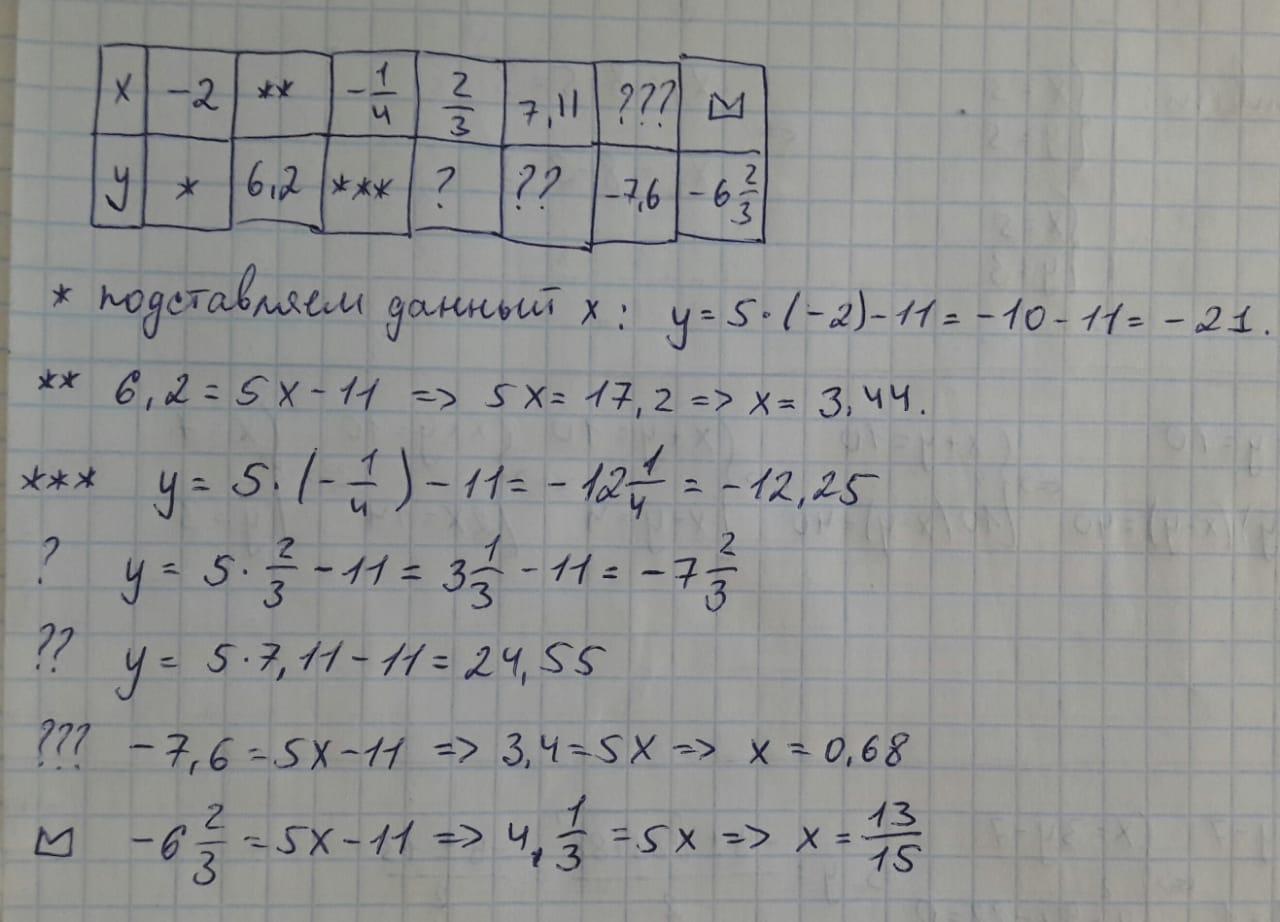 x -2 ** -1/4 2/3 7,11 ???
y * 6,2 *** ? ?? -7,6 -6 2/3
* подставляем данный x: y = 5·(-2)-11 = -10-11 = -21.
** 6,2 = 5x-11 => 5x = 17,2 => x = 3,44.
*** y = 5·(-1/4)-11 = -12 1/4 = -12,25
? y = 5·2/3-11 = 3 1/3-11 = -7 2/3
?? y = 5·7,11-11 = 24,55
??? -7,6 = 5x-11 => 3,4 = 5x => x = 0,68
-6 2/3 = 5x-11 => 4, 1/3 = 5x => x = 13/15